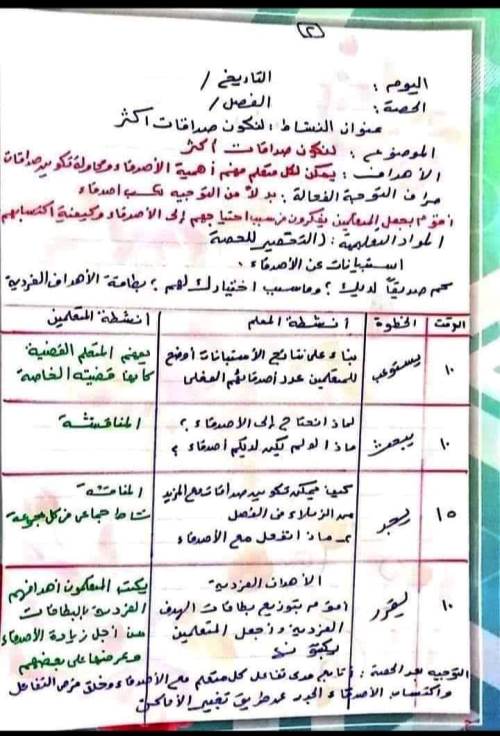 ٢
اليوم : التاريخ /
الحصة : الفصل /
عنوان النشاط : لنكون صداقات اكثر
الموضوع : لنكون صداقات أكثر
الأهداف : يمكن لكل متعلم فهم أهمية الأصدقاء ومحاولة تكوين صداقات
مراف التوجية الفعالة : بدلاً من التوجيه لكسب اصدقاء
اقوم بجعل المتعلمين يفكرون من سبب احتياجهم إلى الأصدقاء وكيفية اكتسابهم
المواد التعليمية : (التحضير للحصة
استبيانات عن الأصدقاء .
كم صديقاً لديك ؟ وماسبب اختيارك لهم ؟ بطاقة الأهداف الفردية
الوقت الخطوة أنشطة المعلم أنشطة المتعلمين
١٠ يستوعب بناء على نتائج الأستبيانات أوضح يفهم المتعلم القضية
للمتعلمين عدد أصدقائهم الفعلى كأنها قضيته الخاصة
١٠ يبحث لماذا نحتاج إلى الأصدقاء ؟ المناقشة
ماذا لو لم يكن لديكم أصدقاء ؟
١٥ يجد كيف يمكن تكوين صداقات مع المزيد المناقشة
من الزملاء فى الفصل نشاط جماعى من كل مجموعة
ماذا نفعل مع الأصدقاء
١٠ يقرر الأهداف الفردية يكتب المتعلمون أهدافهم
اقوم بتوزيع بطاقات الهدف الفردية بالبطاقات
الفردية وأجعل المتعلمين من أجل زيادة الأصدقاء
يكتبونها وعرضها على بعضهم
التوجيه بعد الحصة : أتابع مدى تفاعل كل متعلم مع الأصدقاء وخلق فرص التفاعل
واكتساب الأصدقاء الجدد عن طريق تغيير الأماكن